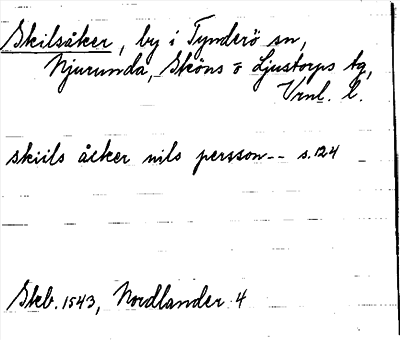 Skilsåker, by i Tynderö sn,
Njurunda, Sköns o Ljustorps tg,
Vrnl. l.
skiils åcker nils persson-- s.124
Skb. 1543, Nordlander 4